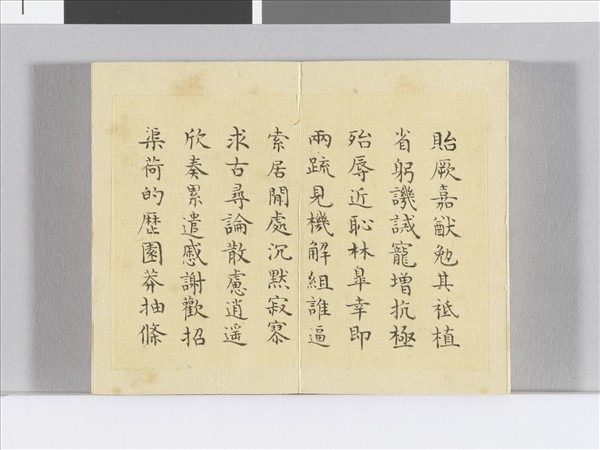 貽厥嘉猷勉其祗植
省躬譏誡寵增抗極
殆辱近恥林皋幸即
兩疏見機解組誰逼
索居閒處沉默寂寥
求古尋論散慮逍遥
欣奏累遣慼謝歡招
渠荷的歷園莽抽條